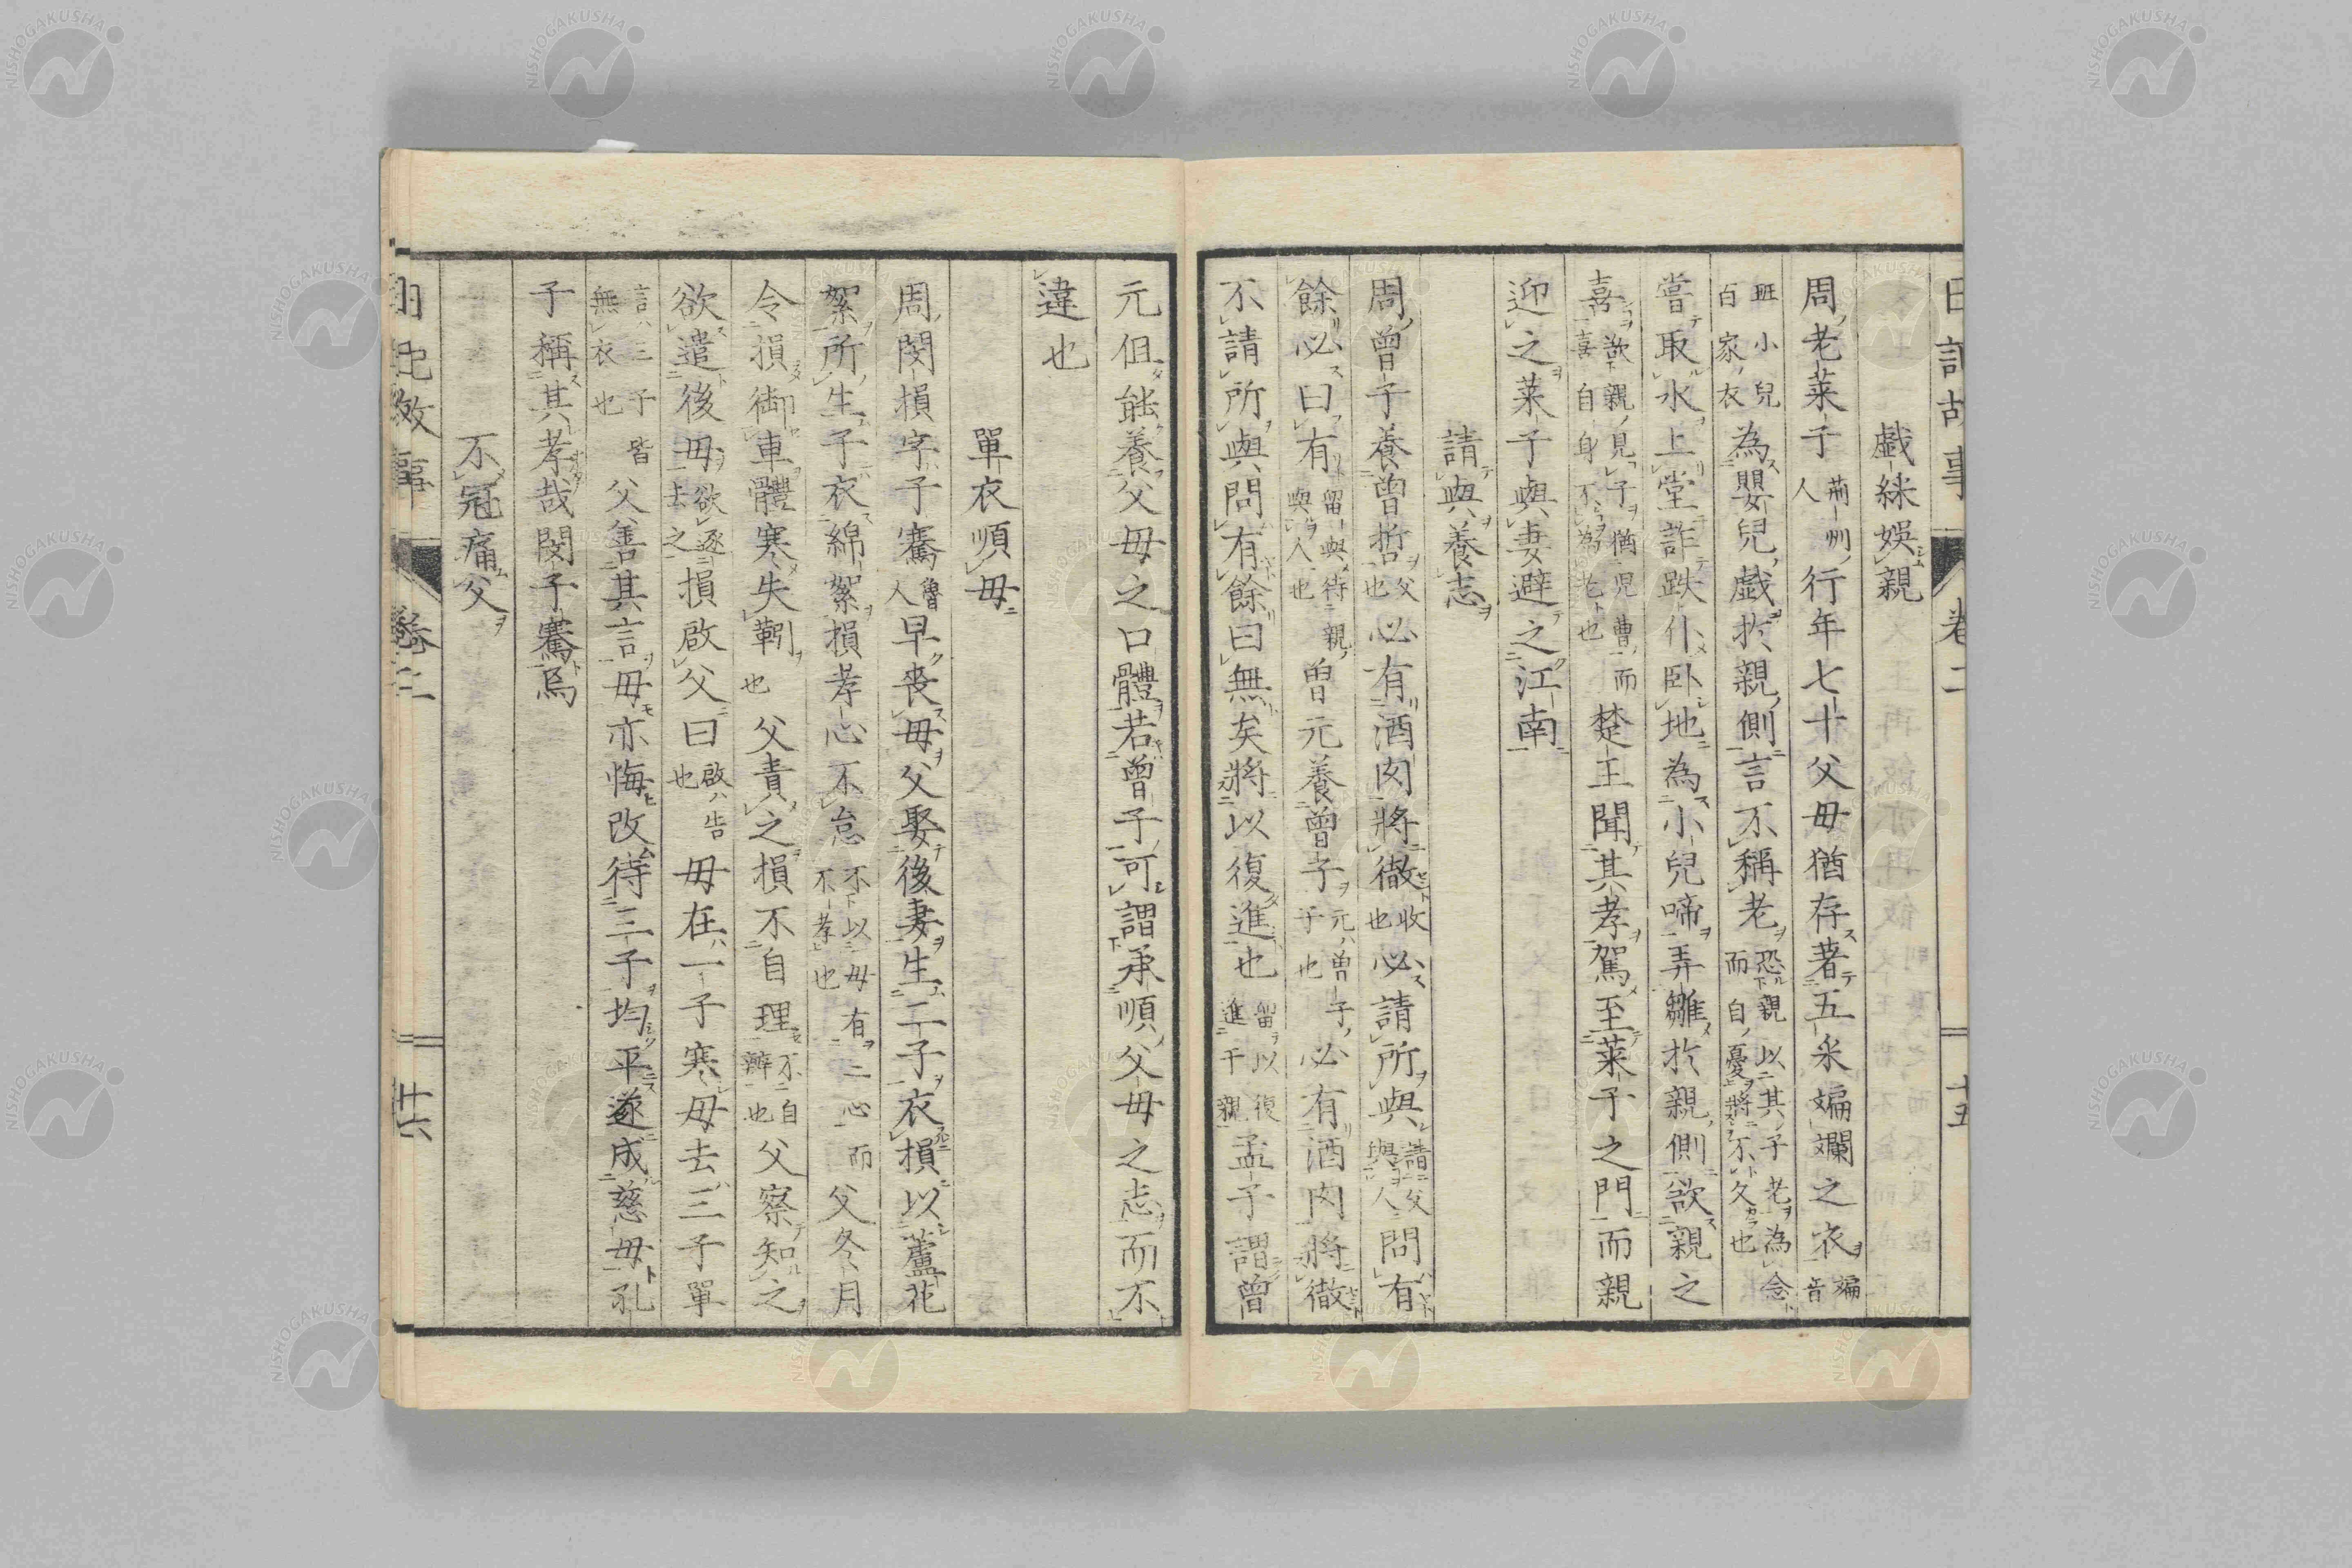 日記故事 卷二 十五
戯綵娯親
周老萊子荊州人行年七十父母猶存著五采斒斕之衣斒音
班小兒百家衣為嬰兒戯於親側言不稱老恐親以其子老為念而自憂將不久也
嘗取水上堂詐跌仆臥地為小兒啼弄雛於親側欲親之
喜欲親見子猶児曹而喜自身不為老也楚王聞其孝駕至萊子之門而親
迎之萊子與妻避之江南
請與養志
周曾子養曾晳父也必有酒肉將徹收也必請所與請父與人問有
餘必曰有留與待親與人也曽元養曽子元ハ曽子子也必有酒肉將徹
不請所與問有餘曰無矣將以復進也留以復進于親孟子謂曽
元但能養父母之口體若曽子可謂承順父母之志而不
違也
單衣順母
周閔損字子騫魯人早喪母父娶後妻生二子衣損以蘆花
絮所生子衣綿絮損孝心不怠不以母有二心而不孝也父冬月
令損御車體寒失靷也父責之損不自理不自辨也父察知之
欲遣後母欲逐去之損啟父曰啟ハ告也母在一子寒母去三子單
言ハ三子皆無衣也父善其言母亦悔改待三子均平遂成慈母孔
子稱其孝哉閔子騫焉
不冠痛父
日記故事 卷二 十六